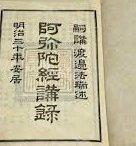 嗣講渡邉法瑞述
阿弥陀經講録
明治三十年安居